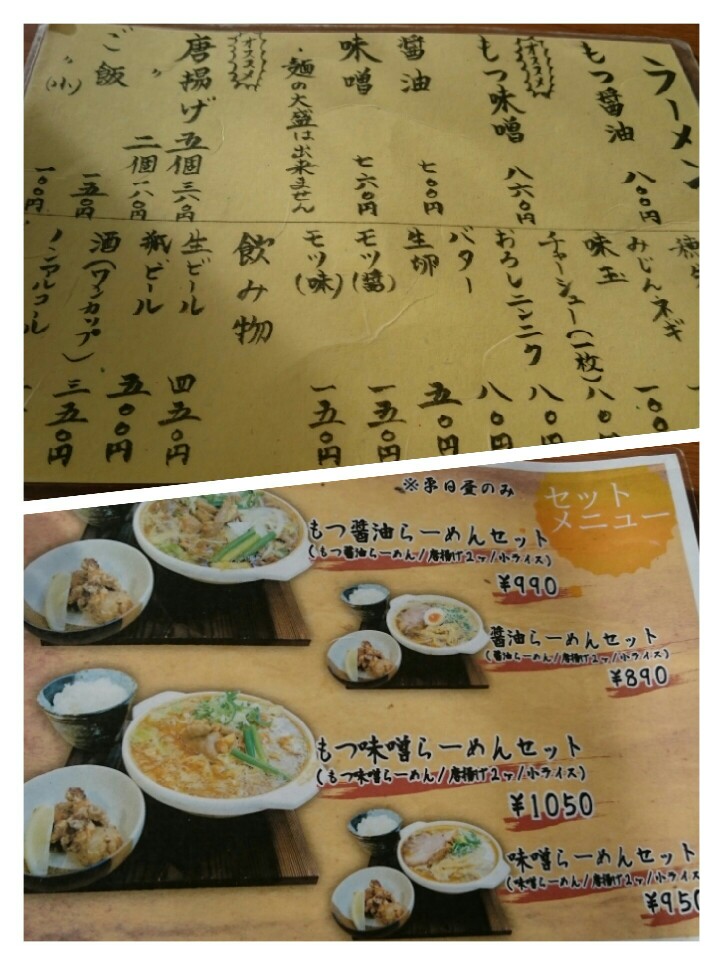 ラーメン
もつ醤油 八〇〇円
オススメ
もつ味噌 八六〇円
醤油 七〇〇円
味噌 七六〇円
・麺の大盛は出来ません
オススメ
唐揚げ 五個 三六〇円
〃 二個 一八〇円
ご飯 一五〇円
〃(小) 一〇〇円
みじんネギ 一〇〇
味玉 八〇
チャーシュー(一枚) 八〇
おろしニンニク 八〇円
バター 八〇円
生卵 五〇円
モツ(醤) 一五〇円
モツ(味) 一五〇円
飲み物
生ビール 四五〇円
瓶ビール 五〇〇円
酒(ワンカップ) 三五〇円
ノンアルコール
※平日昼のみ
セット
メニュー
もつ醤油らーめんセット
(もつ醤油らーめん/唐揚げ2ヶ/小ライス)
¥990
醤油らーめんセット
(醤油らーめん/唐揚げ2ヶ/小ライス)
¥890
もつ味噌らーめんセット
(もつ味噌らーめん/唐揚げ2ヶ/小ライス)
¥1050
味噌らーめんセット
(味噌らーめん/唐揚げ2ヶ/小ライス
¥950